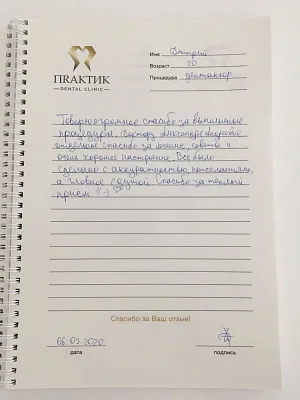 ПRАКТИК
DENTAL CLINIC
Имя Дмитрий
Возраст 20
Процедура
Говорю огромное спасибо за выполненные
процедуры. Доктору Александре Андреевне
отдельное спасибо за лечение, советы и
очень хорошее настроение. Всё было
сделано с аккуратностью, пожеланиями,
а главное с душой. Спасибо за тёплый
приём !! :-)
Спасибо за Ваш отзыв!
06.03.2020
дата
подпись